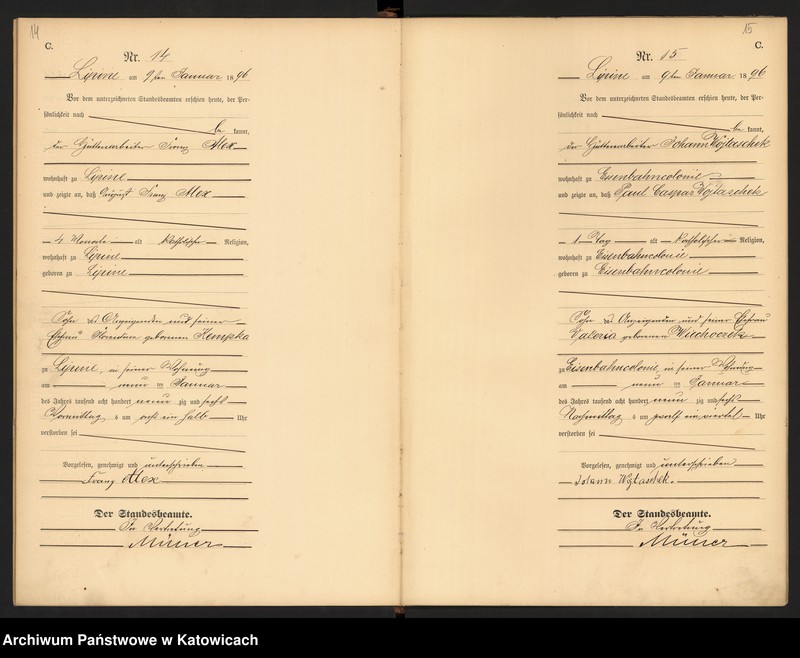 14
C.
Nr. 14
Lipine am 9ten Januar 1896
Vor dem unterzeichneten Standesbeamten erschien heute, der Per-
sönlichkeit nach
be kannt,
der Hüttenarbeiter Franz Alex
wohnhaft zu Lipine
und zeigte an, daß August Franz Alex
4 Monate alt katholischer Religion,
wohnhaft zu Lipine
geboren zu Lipine
Sohn des Anzeigenden und seiner
Ehefrau Florentine geborenen Kempka
zu Lipine, in seiner Wohnung
am neun ten Januar
des Jahres tausend acht hundert neun zig und sechs
Vormittag s um acht ein halb Uhr
verstorben sei
Vorgelesen, genehmigt und unterschrieben
Franz Alex
Der Standesbeamte.
In Vertretung
15
C.
Nr. 15
Lipine am 9ten Januar 1896
Vor dem unterzeichneten Standesbeamten erschien heute, der Per-
sönlichkeit nach
be kannt,
der Hüttenarbeiter Johann Wojtaschek
wohnhaft zu Eisenbahncolonie
und zeigte an, daß Paul Caspar Wojtaschek
1 Tag alt katholischer Religion,
wohnhaft zu Eisenbahncolonie
geboren zu Eisenbahncolonie
Sohn des Anzeigenden und seiner Ehefrau
Valeria geborenen Wiechoczek
zu Eisenbahncolonie, in seiner Wohnung
am neun ten Januar
des Jahres tausend acht hundert neun zig und sechs
Nachmittag s um zwölf ein viertel Uhr
verstorben sei
Vorgelesen, genehmigt und unterschrieben
Johann Wojtaschek.
Der Standesbeamte.
In Vertretung
Archiwum Państwowe w Katowicach